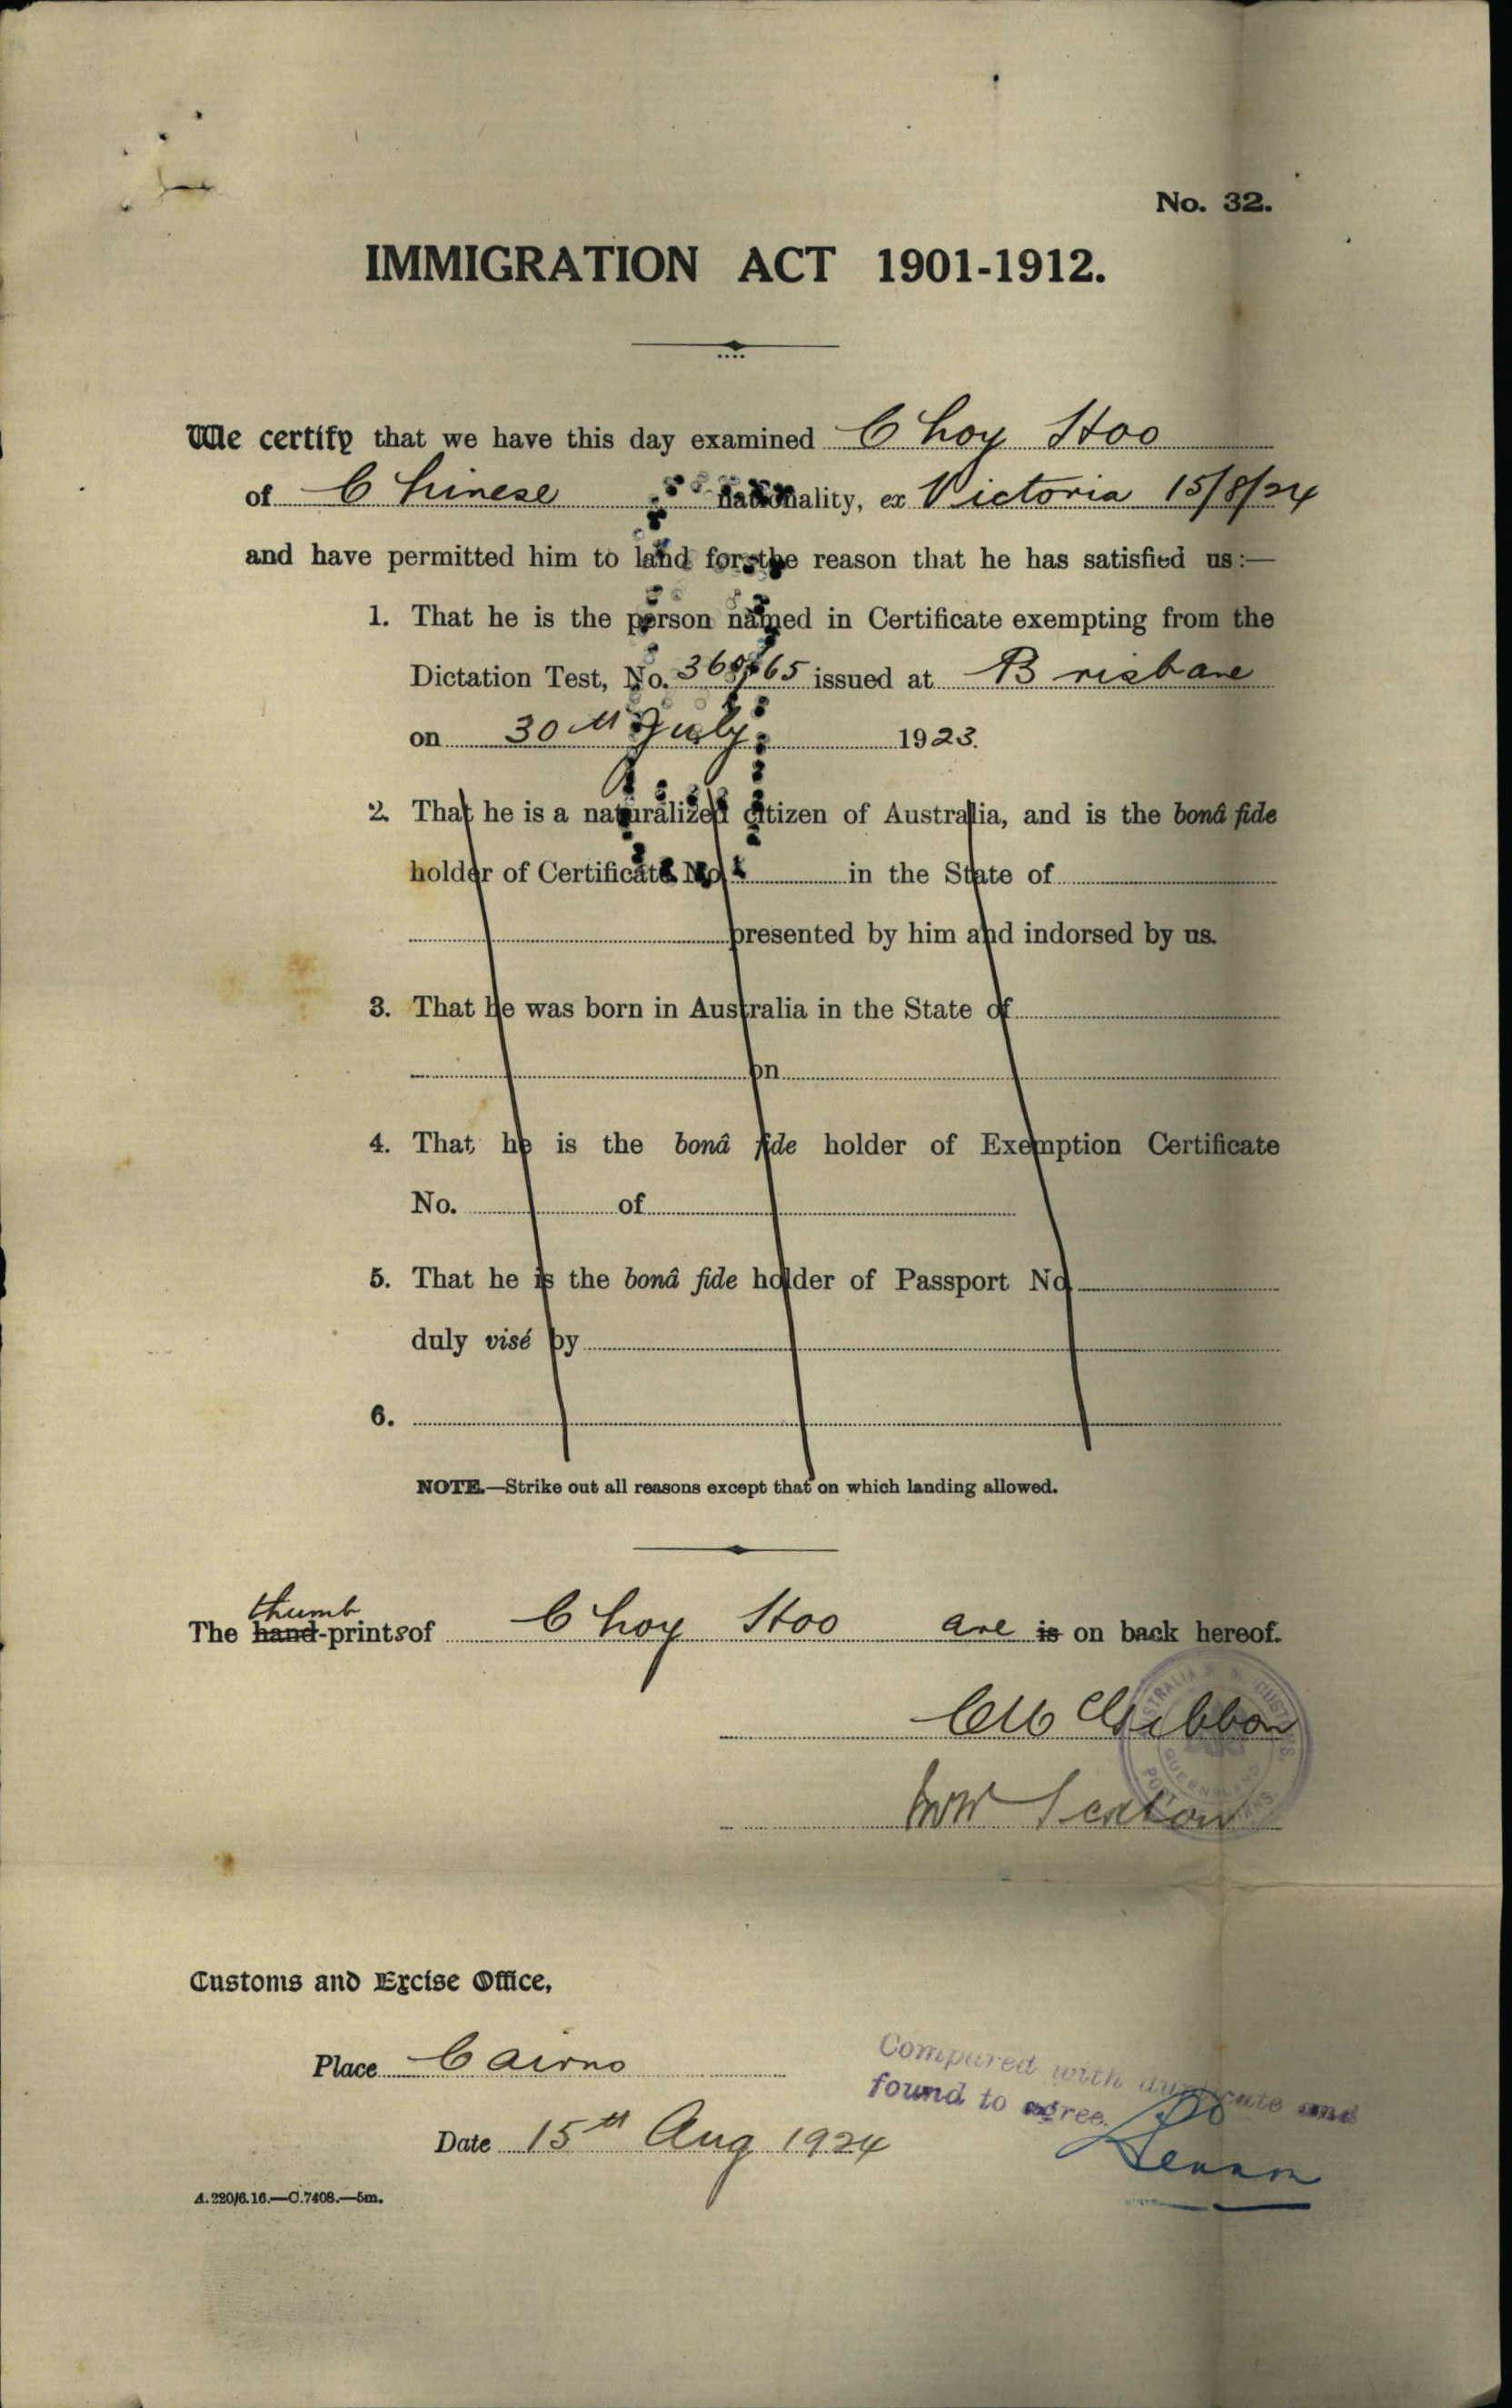 No. 32.
IMMIGRATION ACT 1901-1912.
We certify that we have this day examined Choy Hoo
of Chinese nationality, ex Victoria 15/8/24
and have permitted him to land for the reason that he has satisfied us:—
1. That he is the person named in Certificate exempting from the
Dictation Test, No. issued at Brisbane
on 30th July 1923.
2. That he is a naturalized citizen of Australia, and is the bonâ fide
holder of Certificate No. in the State of
presented by him and indorsed by us.
3. That he was born in Australia in the State of
on
4. That he is the bonâ fide holder of Exemption Certificate
No. of
5. That he is the bonâ fide holder of Passport No.
duly visé by
6.
NOTE.—Strike out all reasons except that on which landing allowed.
thumb
The hand-prints of Choy Hoo are is on back hereof.
Gibbon
Sexton
Customs and Excise Office,
Place Cairns
Date 15th Aug 1924
Compared with duplicate and
found to agree.
A.220/6.16.—C.7408.—5m.